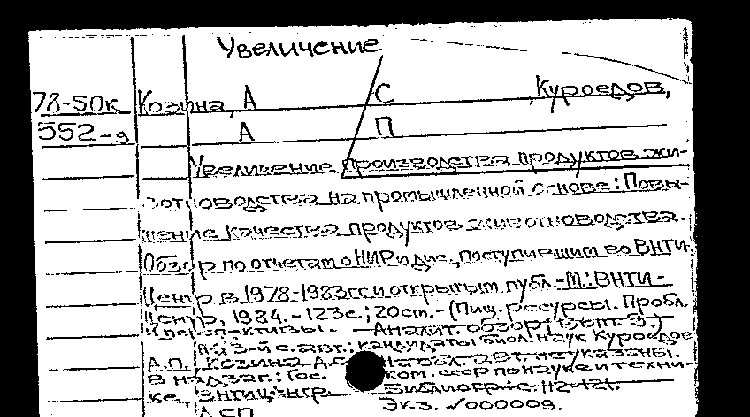 Увеличение
78-50к Козина, А С Куроедов,
552-д А П
Увеличение производства продуктов жи-
вотноводства на промышленной основе: Повы-
шение качества продуктов животноводства.
Обзор по отчетам о НИР и дис., поступившим во ВНТИ-
Центр в 1978-1983гг и открытым публ.-М.: ВНТИ-
Центр, 1984.-123с.; 20см.-(Пищ. ресурсы. Пробл.
и перспективы. -Аналит. обзор; Вып. 3.)
На 3-й с. авт.: кандидаты биол. наук Куроедов
А.П., Козина А.С. авт. не указаны.
В надзаг.: Гос. ком. СССР по науке и техни-
ке, ВНТИЦентр. Библиогр.: с. 112-121.
Экз. №000009.